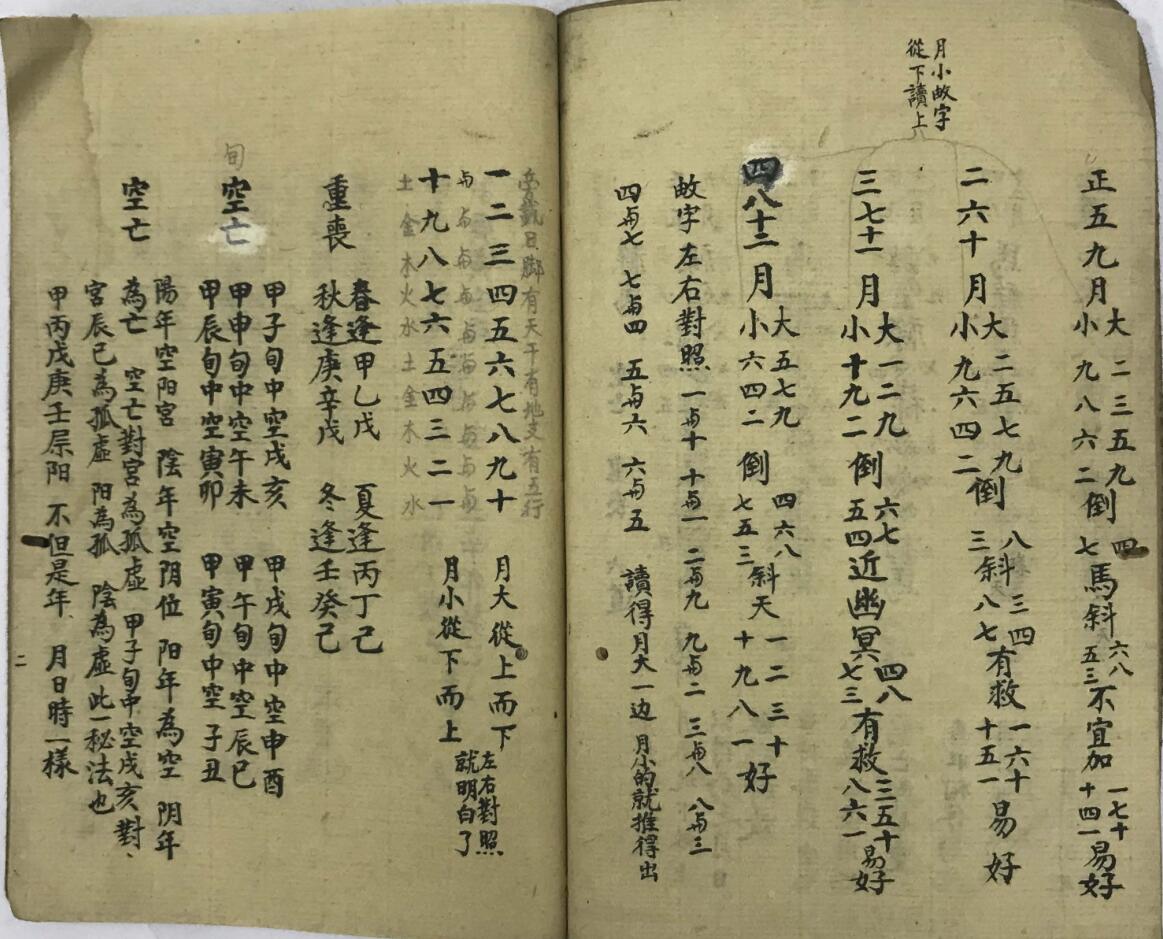 月小畝字
從下讀上
正五九月 大 二三五九 小 九八六二 倒 四 七 馬斜 六八 五三 不宜加 一七十 十四一 易好
二六十月 大 二五七九 小 九六四二 倒 八 三 斜 三四 八七 有救 一六十 十五一 易好
三七十一月 大 一二九 小 十九二 倒 六七 五四 近幽冥 四八 七三 有救 三五十 八六一 易好
四八十二月 大 五七九 小 六四二 倒 四六八 七五三 斜天 一二三十 十九八一 好
畝字左右對照 一与十 十与一 二与九 九与二 三与八 八与三
四与七 七与四 五与六 六与五 讀得月大一边 月小的就推得出
日脚有天干有地支有五行
一二三四五六七八九十 月大從上而下 左右對照
与与与与与与与与与与
十九八七六五四三二一 月小從下而上 就明白了
土金木火水土金木火水
重喪 春逢甲乙戊 夏逢丙丁己
秋逢庚辛戊 冬逢壬癸己
旬
空亡 甲子旬中空戌亥 甲戌旬中空申酉
甲申旬中空午未 甲午旬中空辰巳
甲辰旬中空寅卯 甲寅旬中空子丑
空亡 陽年空阳宮 陰年空阴位 阳年為空 阴年
為亡 空亡對宮為孤虛 甲子旬中空戌亥對
宮辰巳為孤虛 阳為孤 陰為虛 此一秘法也
甲丙戊庚壬屬阳 不但是年 月日時一樣
二